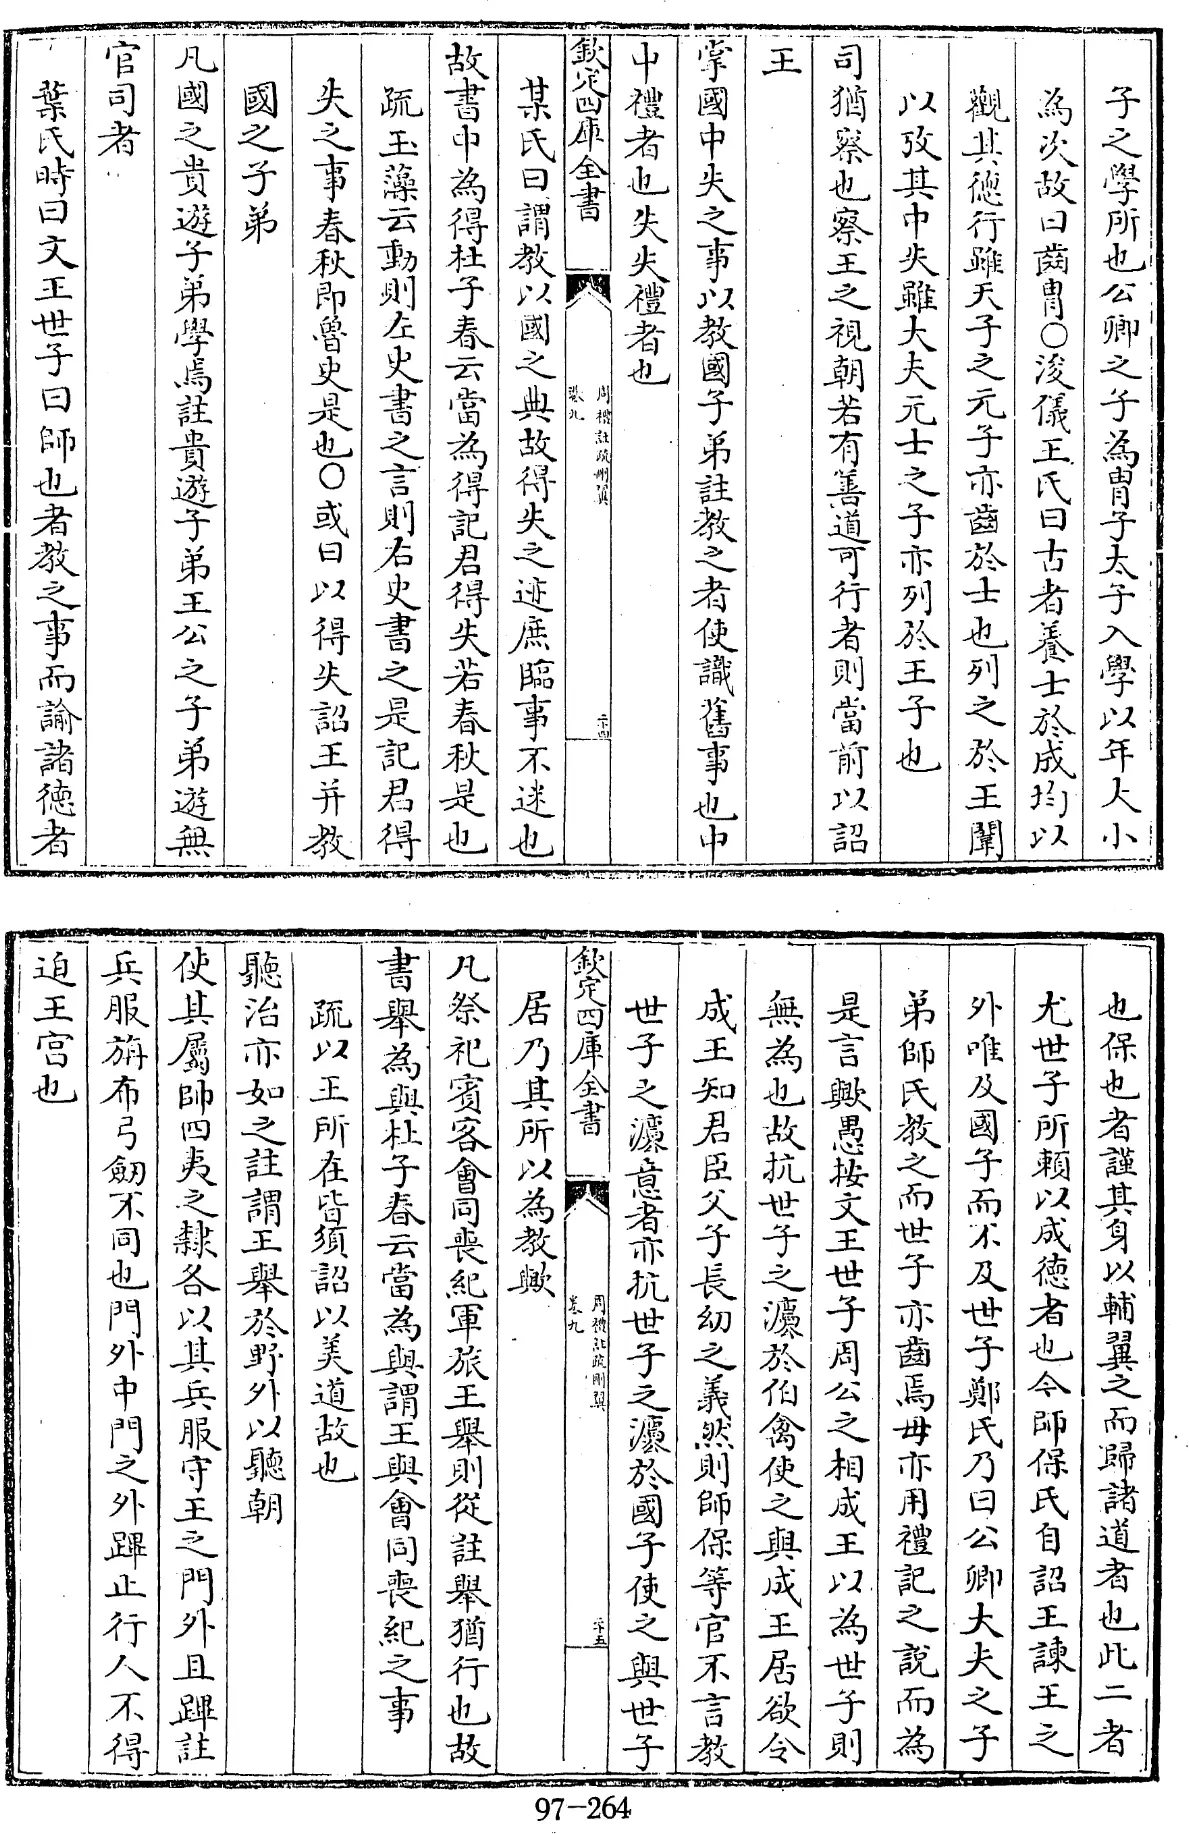 子之學所也公卿之子為胄子太子入學以年大小
為次故曰齒胄〇浚儀王氏曰古者養士於成均以
觀其德行雖天子之元子亦齒於士也列之於王闈
以攷其中失雖大夫元士之子亦列於王子也
司猶察也察王之視朝若有善道可行者則當前以詔
王
掌國中失之事以教國子弟註教之者使識舊事也中
中禮者也失失禮者也
欽定四庫全書
周禮註疏刪翼
卷九
二十四
某氏曰謂教以國之典故得失之迹庶臨事不迷也
故書中為得杜子春云當為得記君得失若春秋是也
疏玉藻云動則左史書之言則右史書之是記君得
失之事春秋即魯史是也〇或曰以得失詔王并教
國之子弟
凡國之貴遊子弟學焉註貴遊子弟王公之子弟遊無
官司者
葉氏時曰文王世子曰師也者教之事而諭諸德者
也保也者謹其身以輔翼之而歸諸道者也此二者
尤世子所賴以成德者也今師保氏自詔王諫王之
外唯及國子而不及世子鄭氏乃曰公卿大夫之子
弟師氏教之而世子亦齒焉毋亦用禮記之說而為
是言歟愚按文王世子周公之相成王以為世子則
無為也故抗世子之灋於伯禽使之與成王居欲令
成王知君臣父子長幼之義然則師保等官不言教
世子之灋意者亦抗世子之灋於國子使之與世子
欽定四庫全書
周禮註疏刪翼
卷九
二十五
居乃其所以為教歟
凡祭祀賓客會同喪紀軍旅王舉則從註舉猶行也故
書舉為與杜子春云當為與謂王與會同喪紀之事
疏以王所在皆須詔以美道故也
聽治亦如之註謂王舉於野外以聽朝
使其屬帥四夷之隸各以其兵服守王之門外且蹕註
兵服旃布弓劒不同也門外中門之外蹕止行人不得
迫王宮也
97-264